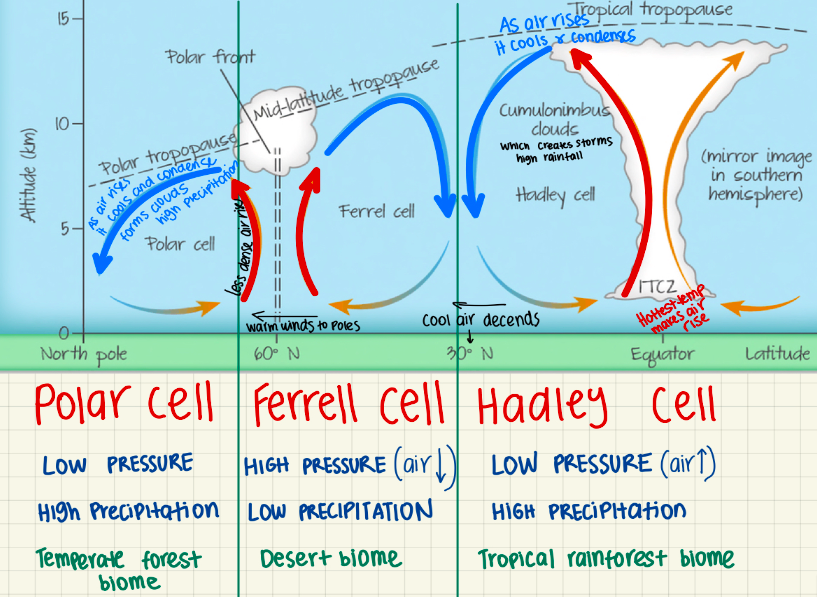 15
Tropical tropopause
As air rises
it cools & condenses
Polar front
Mid-latitude tropopause
10
Altitude (km)
Cumulonimbus
clouds
which creates storms
high rainfall
Polar tropopause
As air rises
it cools and condense
forms clouds
high precipitation
(mirror image
in southern
hemisphere)
Hadley cell
Ferrel cell
5
Polar cell
Less dense air rise
ITCZ
Hottest temp
makes air
rise
warm winds to poles
Cool air decends
0
North pole
60° N
30° N
Equator
Latitude
Polar cell
Ferrell cell
Hadley cell
LOW PRESSURE
HIGH PRESSURE (air↓)
LOW PRESSURE (air↑)
High Precipitation
LOW PRECIPITATION
HIGH PRECIPitation
Temperate forest
biome
Desert biome
Tropical rainforest biome